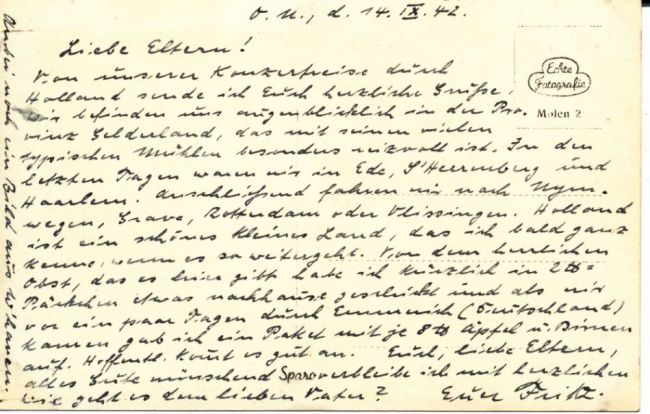 O. U., d. 14. IX. 42.
Liebe Eltern!
Von unserer Konzertreise durch
Holland sende ich Euch herzliche Grüße,
wir befinden uns augenblicklich in der Pro-
vinz Gelderland, das mit seinen vielen
typischen Mühlen besonders reizvoll ist. In den
letzten Tagen waren wir in Ede, S'Heerenberg und
Haarlem. Anschließend fahren wir nach Nym-
wegen, Grave, Rotterdam oder Vlissingen. Holland
ist ein schönes kleines Land, das ich bald ganz
kenne, wenn es so weitergeht. Von dem herrlichen
Obst, das es hier gibt habe ich kürzlich in 2 ℔ =
Päckchen etwas nachhause geschickt und als wir
vor ein paar Tagen durch Emmerich (Deutschland)
kamen gab ich ein Paket mit je 8 ℔ Äpfel u. Birnen
auf. Hoffentl. kommt es gut an. Euch, liebe Eltern,
alles Gute wünschend verbleibe ich mit herzlichen
Wie geht es dem lieben Vater? Euer Fritz.
Anbei noch ein Bild aus
Echte
Fotografie
Molen 2
Sparo